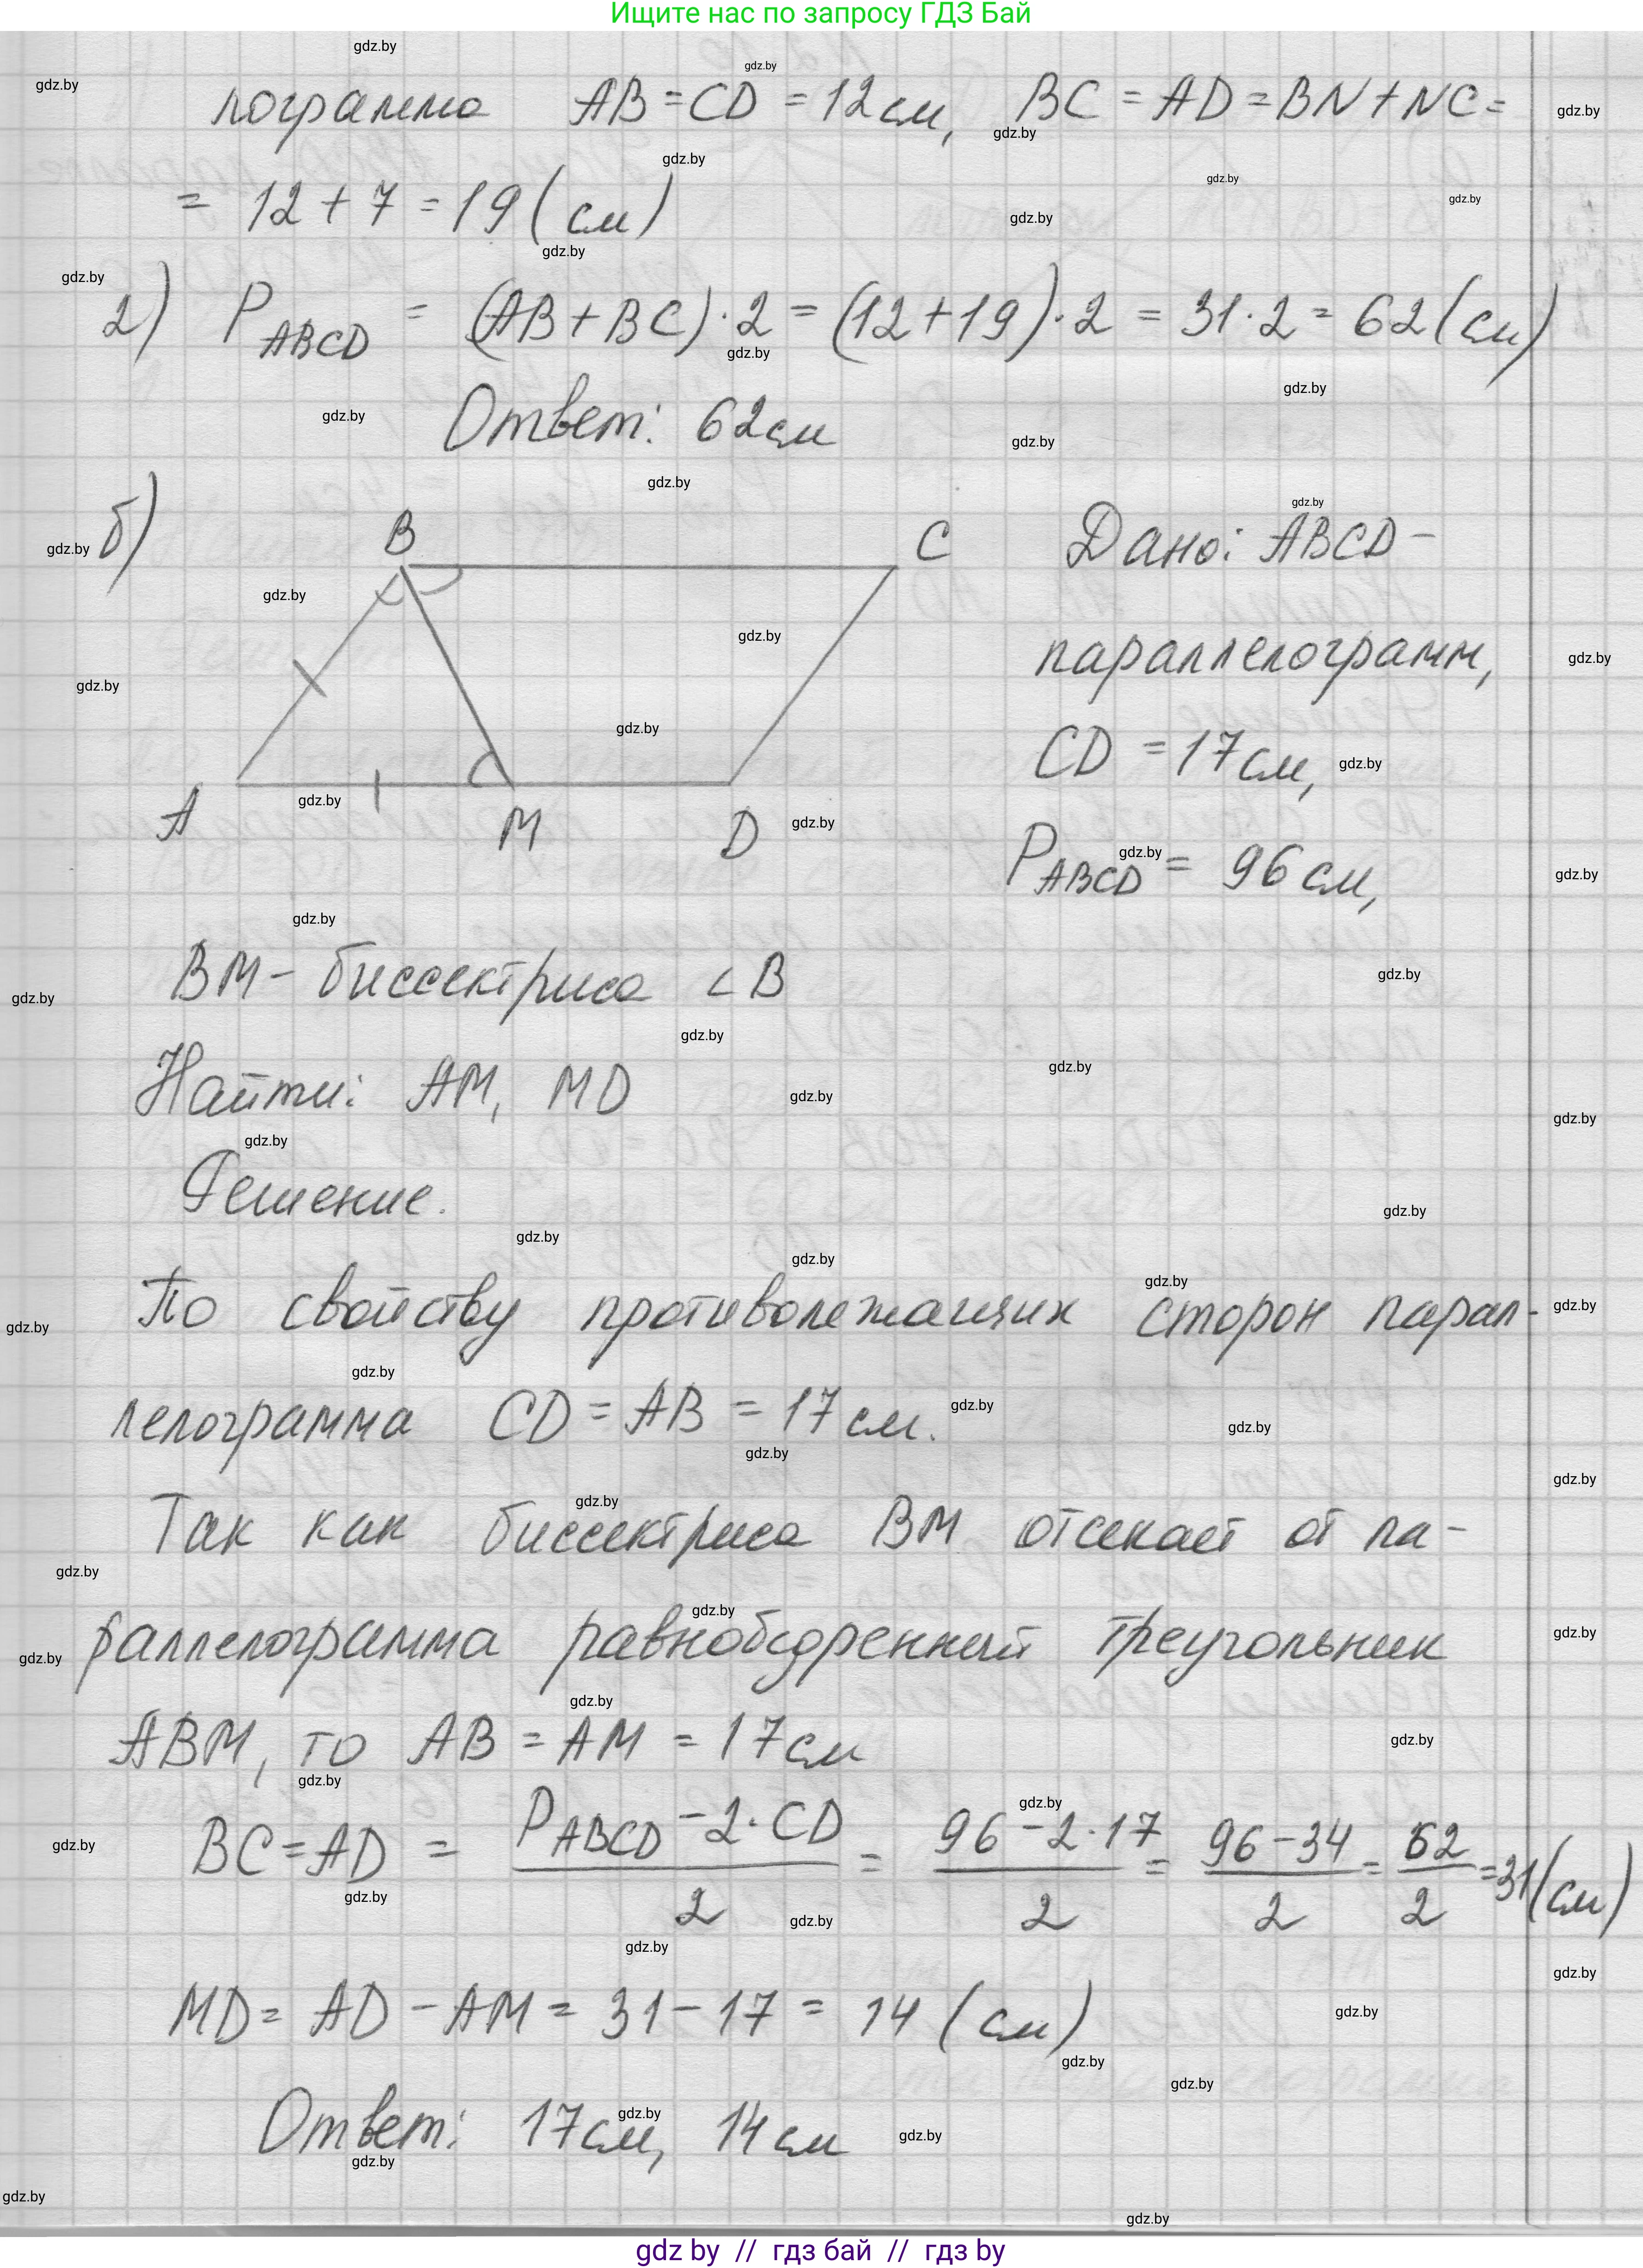 Ищите нас по запросу ГДЗ Бай
лограмма AB = CD = 12 см, BC = AD = BN + NC =
= 12 + 7 = 19 (см)
2) P ABCD = (AB + BC) · 2 = (12 + 19) · 2 = 31 · 2 = 62 (см)
Ответ: 62 см
б)
B C
A M D
Дано: ABCD –
параллелограмм,
CD = 17 см,
P ABCD = 96 см,
BM – биссектриса ∠B
Найти: AM, MD
Решение.
По свойству противолежащих сторон парал-
лелограмма CD = AB = 17 см.
Так как биссектриса BM отсекает от па-
раллелограмма равнобедренный треугольник
ABM, то AB = AM = 17 см
BC = AD = (P ABCD – 2 · CD)/2 = (96 – 2 · 17)/2 = (96 – 34)/2 = 62/2 = 31 (см)
MD = AD – AM = 31 – 17 = 14 (см)
Ответ: 17 см, 14 см
gdz.by
gdz by // гдз бай // гдз by